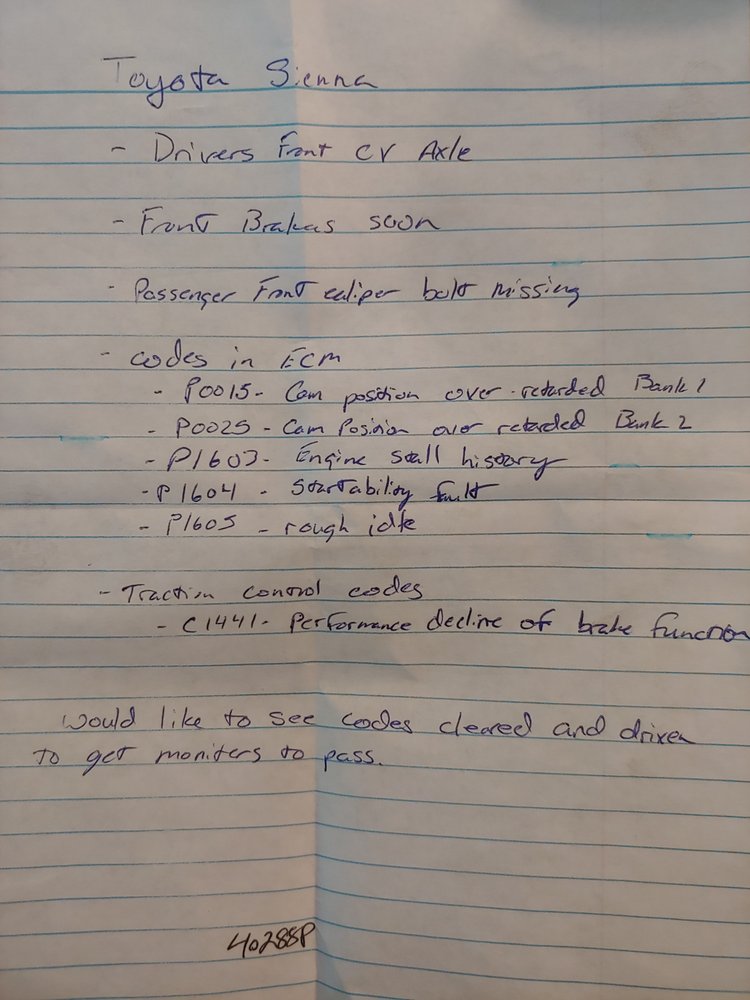 Toyota Sienna
- Drivers Front CV Axle
- Front Brakes soon
- Passenger Front caliper bolt missing
- codes in ECM
- P0015 - Cam position over-retarded Bank 1
- P0025 - Cam Posision over retarded Bank 2
- P1603 - Engine stall history
- P1604 - Startability fault
- P1605 - rough idle
- Traction control codes
- C1441 - Performance decline of brake function
would like to see codes cleared and driven
to get moniters to pass.
40288P